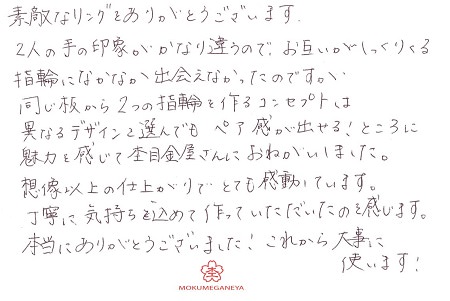 素敵なリングをありがとうございます。
2人の手の印象がかなり違うので、お互いがしっくりくる
指輪になかなか出会えなかったのですが、
同じ板から2つの指輪を作るコンセプトは
異なるデザインを選んでもペア感が出せる!ところに
魅力を感じて杢目金屋さんにおねがいしました。
想像以上の仕上がりでとても感動しています。
丁寧に気持ちを込めて作っていただいたのを感じます。
本当にありがとうございました!これから大事に
使います!
MOKUMEGANEYA